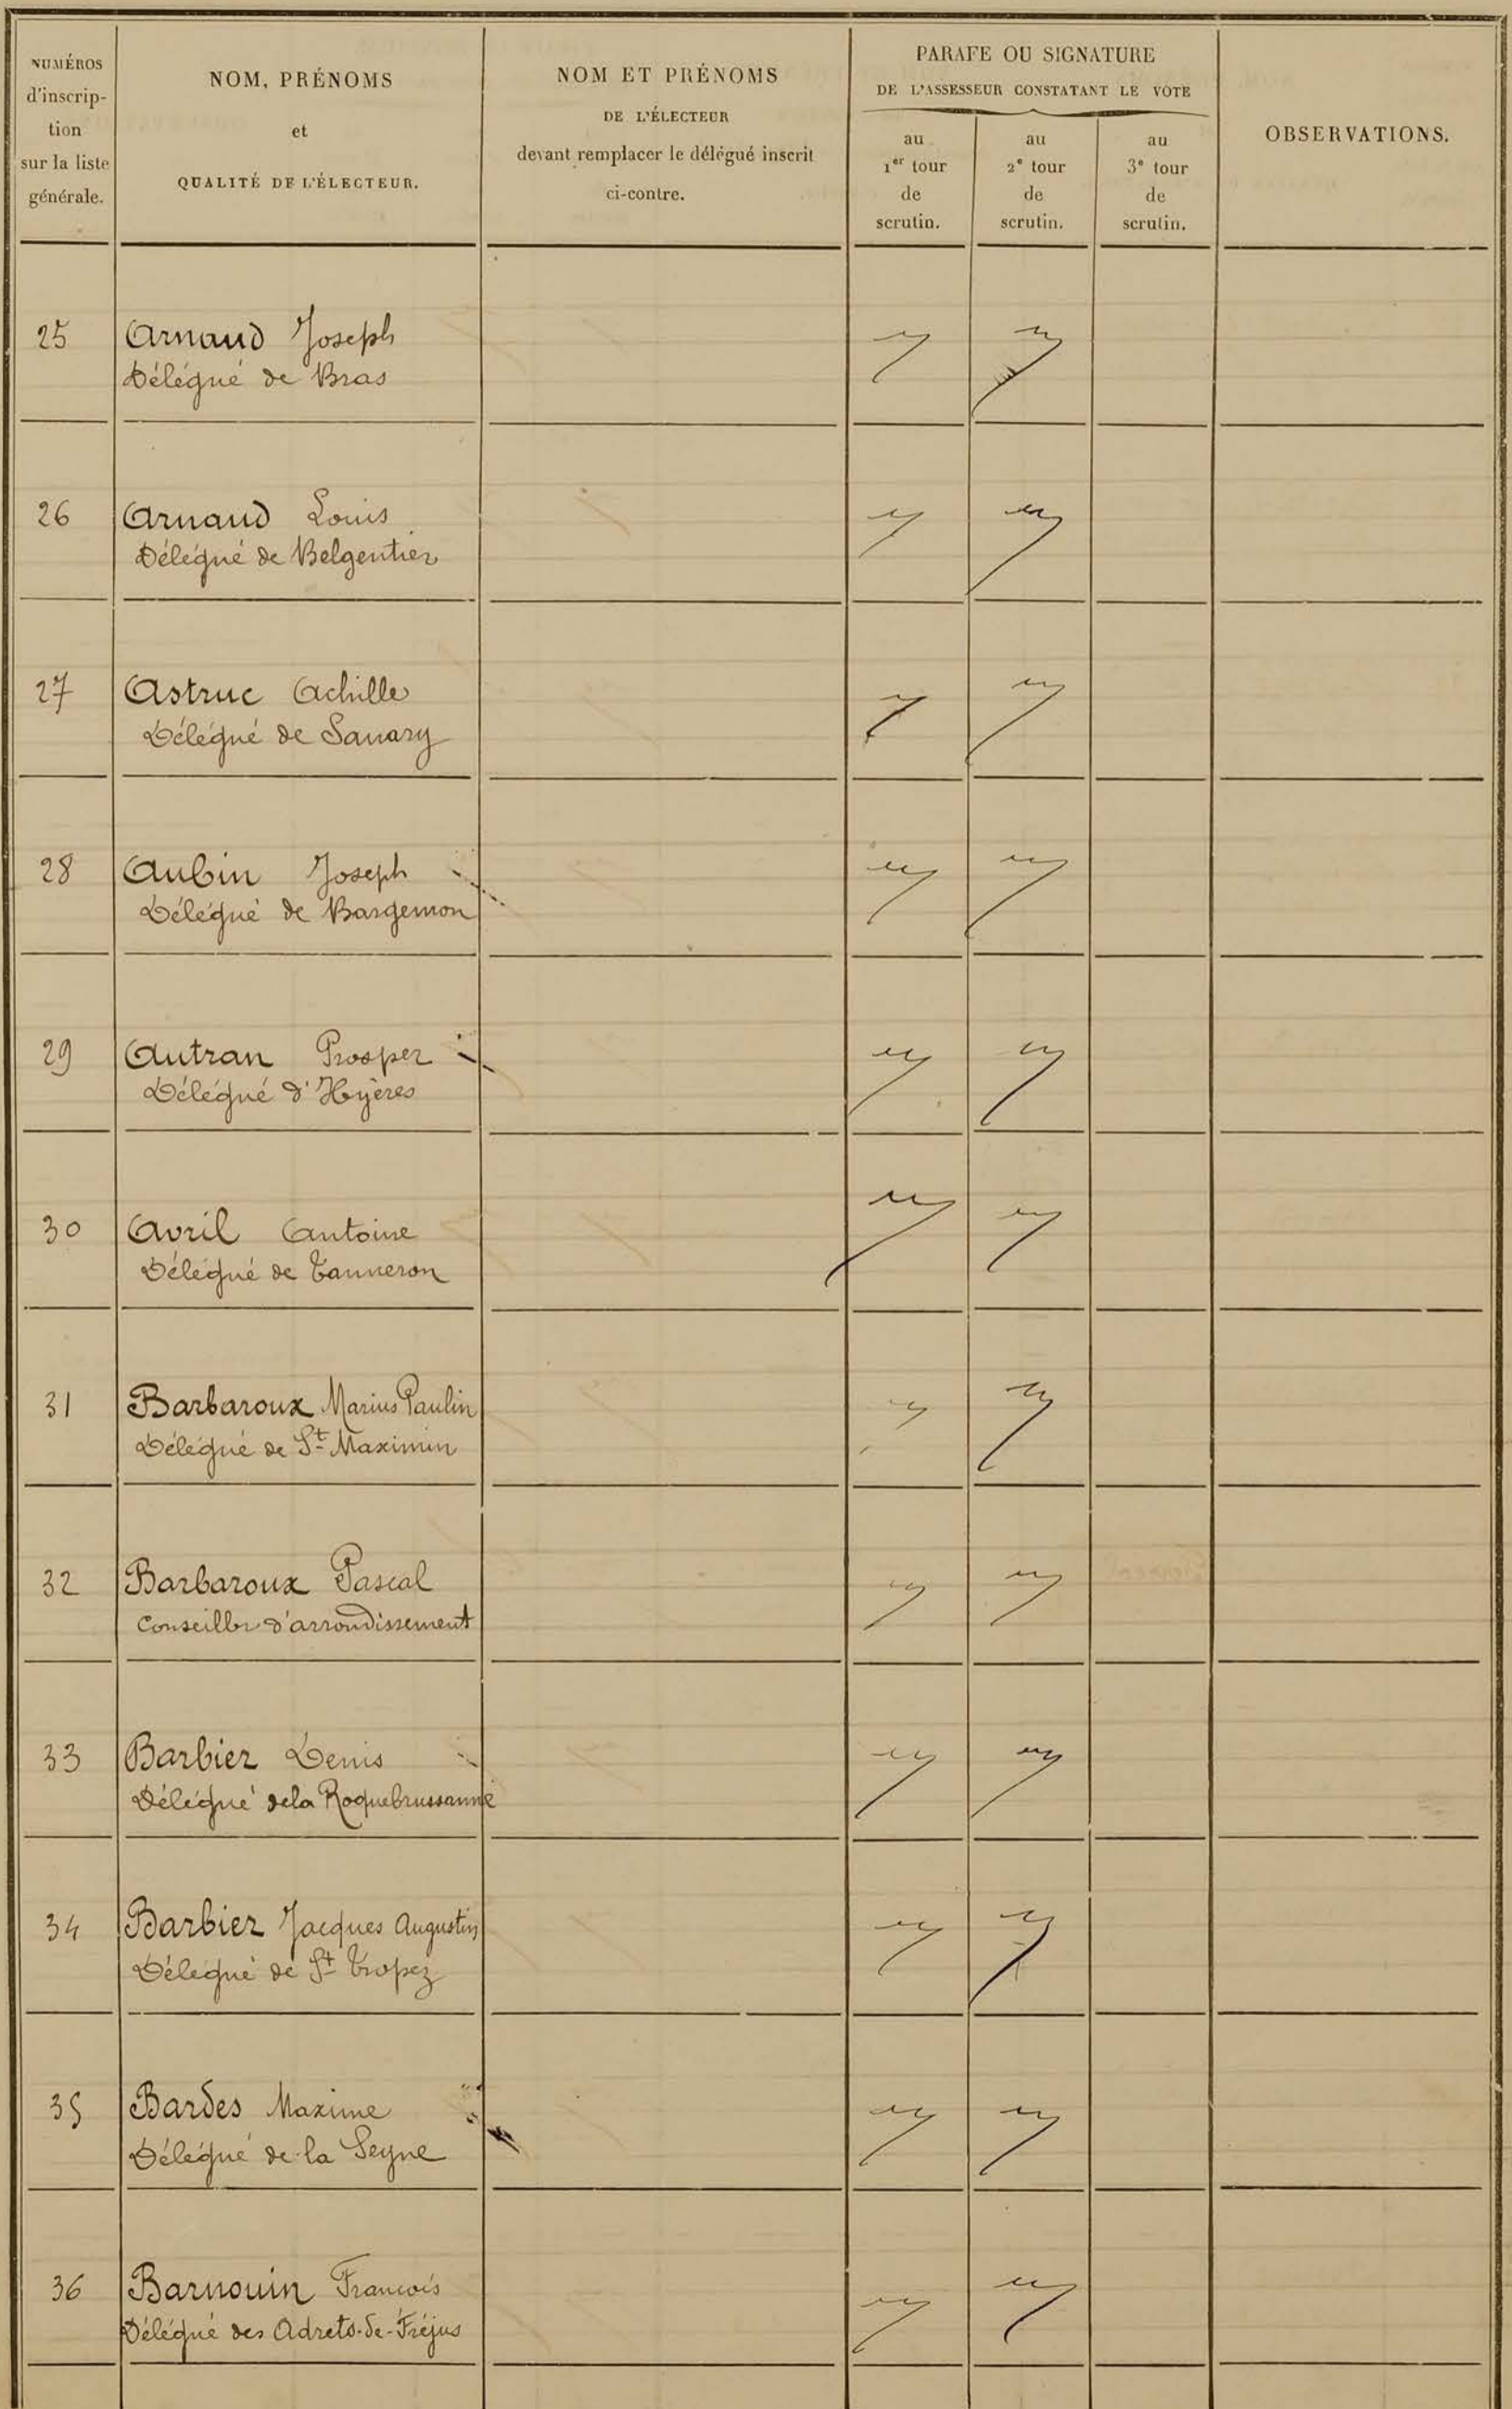 NUMÉROS
d'inscrip-
tion
sur la liste
générale.
NOM, PRÉNOMS
et
QUALITÉ DE L'ÉLECTEUR.
NOM ET PRÉNOMS
DE L'ÉLECTEUR
devant remplacer le délégué inscrit
ci-contre.
PARAFE OU SIGNATURE
DE L'ASSESSEUR CONSTATANT LE VOTE
au
1er tour
de
scrutin.
au
2e tour
de
scrutin.
au
3e tour
de
scrutin.
OBSERVATIONS.
25 Arnaud Joseph
Délégué de Bras
26 Arnaud Louis
Délégué de Belgentier
27 Astruc Achille
Délégué de Sanary
28 Aubin Joseph
Délégué de Bargemon
29 Autran Prosper
Délégué d'Hyères
30 Avril Antoine
Délégué de Tanneron
31 Barbaroux Marius Paulin
Délégué de St Maximin
32 Barbaroux Pascal
Conseiller d'arrondissement
33 Barbier Denis
Délégué de la Roquebrussanne
34 Barbier Jacques Augustin
Délégué de St Tropez
35 Bardes Maxime
Délégué de la Seyne
36 Barnouin François
Délégué des Adrets-de-Fréjus